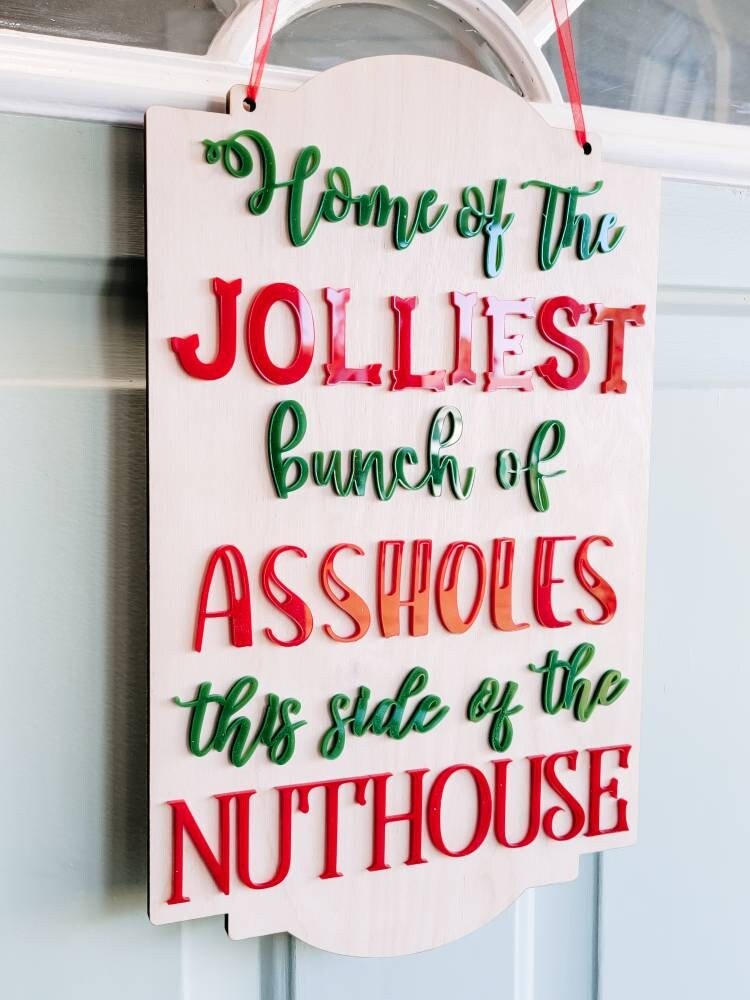 Home of the
JOLLIEST
bunch of
ASSHOLES
this side of the
NUTHOUSE